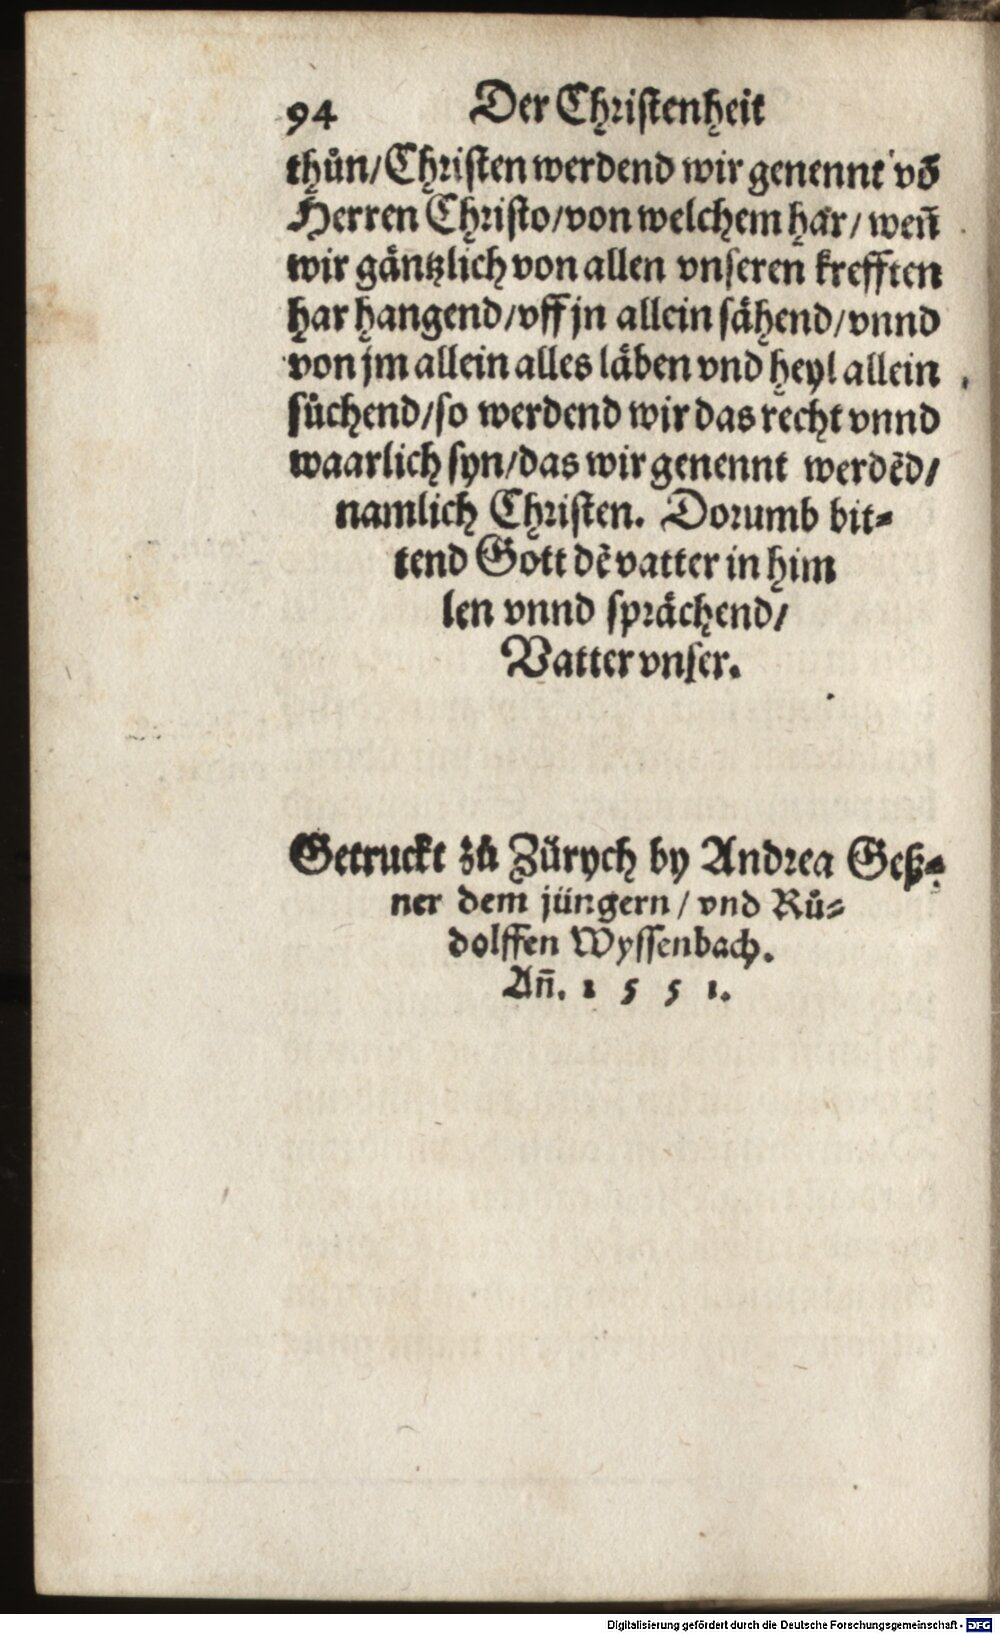 94 Der Christenheit
thůn/Christen werdend wir genennt võ
Herren Christo/von welchem här/weñ
wir gäntzlich von allen vnseren krefften
har hangend/vff jn allein sähend/vnnd
von jm allein alles läben vnd heyl allein
sůchend/so werdend wir das recht vnnd
waarlich syn/das wir genennt werdẽd/
namlich Christen. Dorumb bit⸗
tend Gott dẽ vatter in him
len vnnd sprächend/
Vatter vnser.
Getruckt zů Zürych by Andrea Geß⸗
ner dem jüngern/vnd Rů⸗
dolffen Wyssenbach.
Añ. 1 5 5 1.
Digitalisierung gefördert durch die Deutsche Forschungsgemeinschaft - DFG